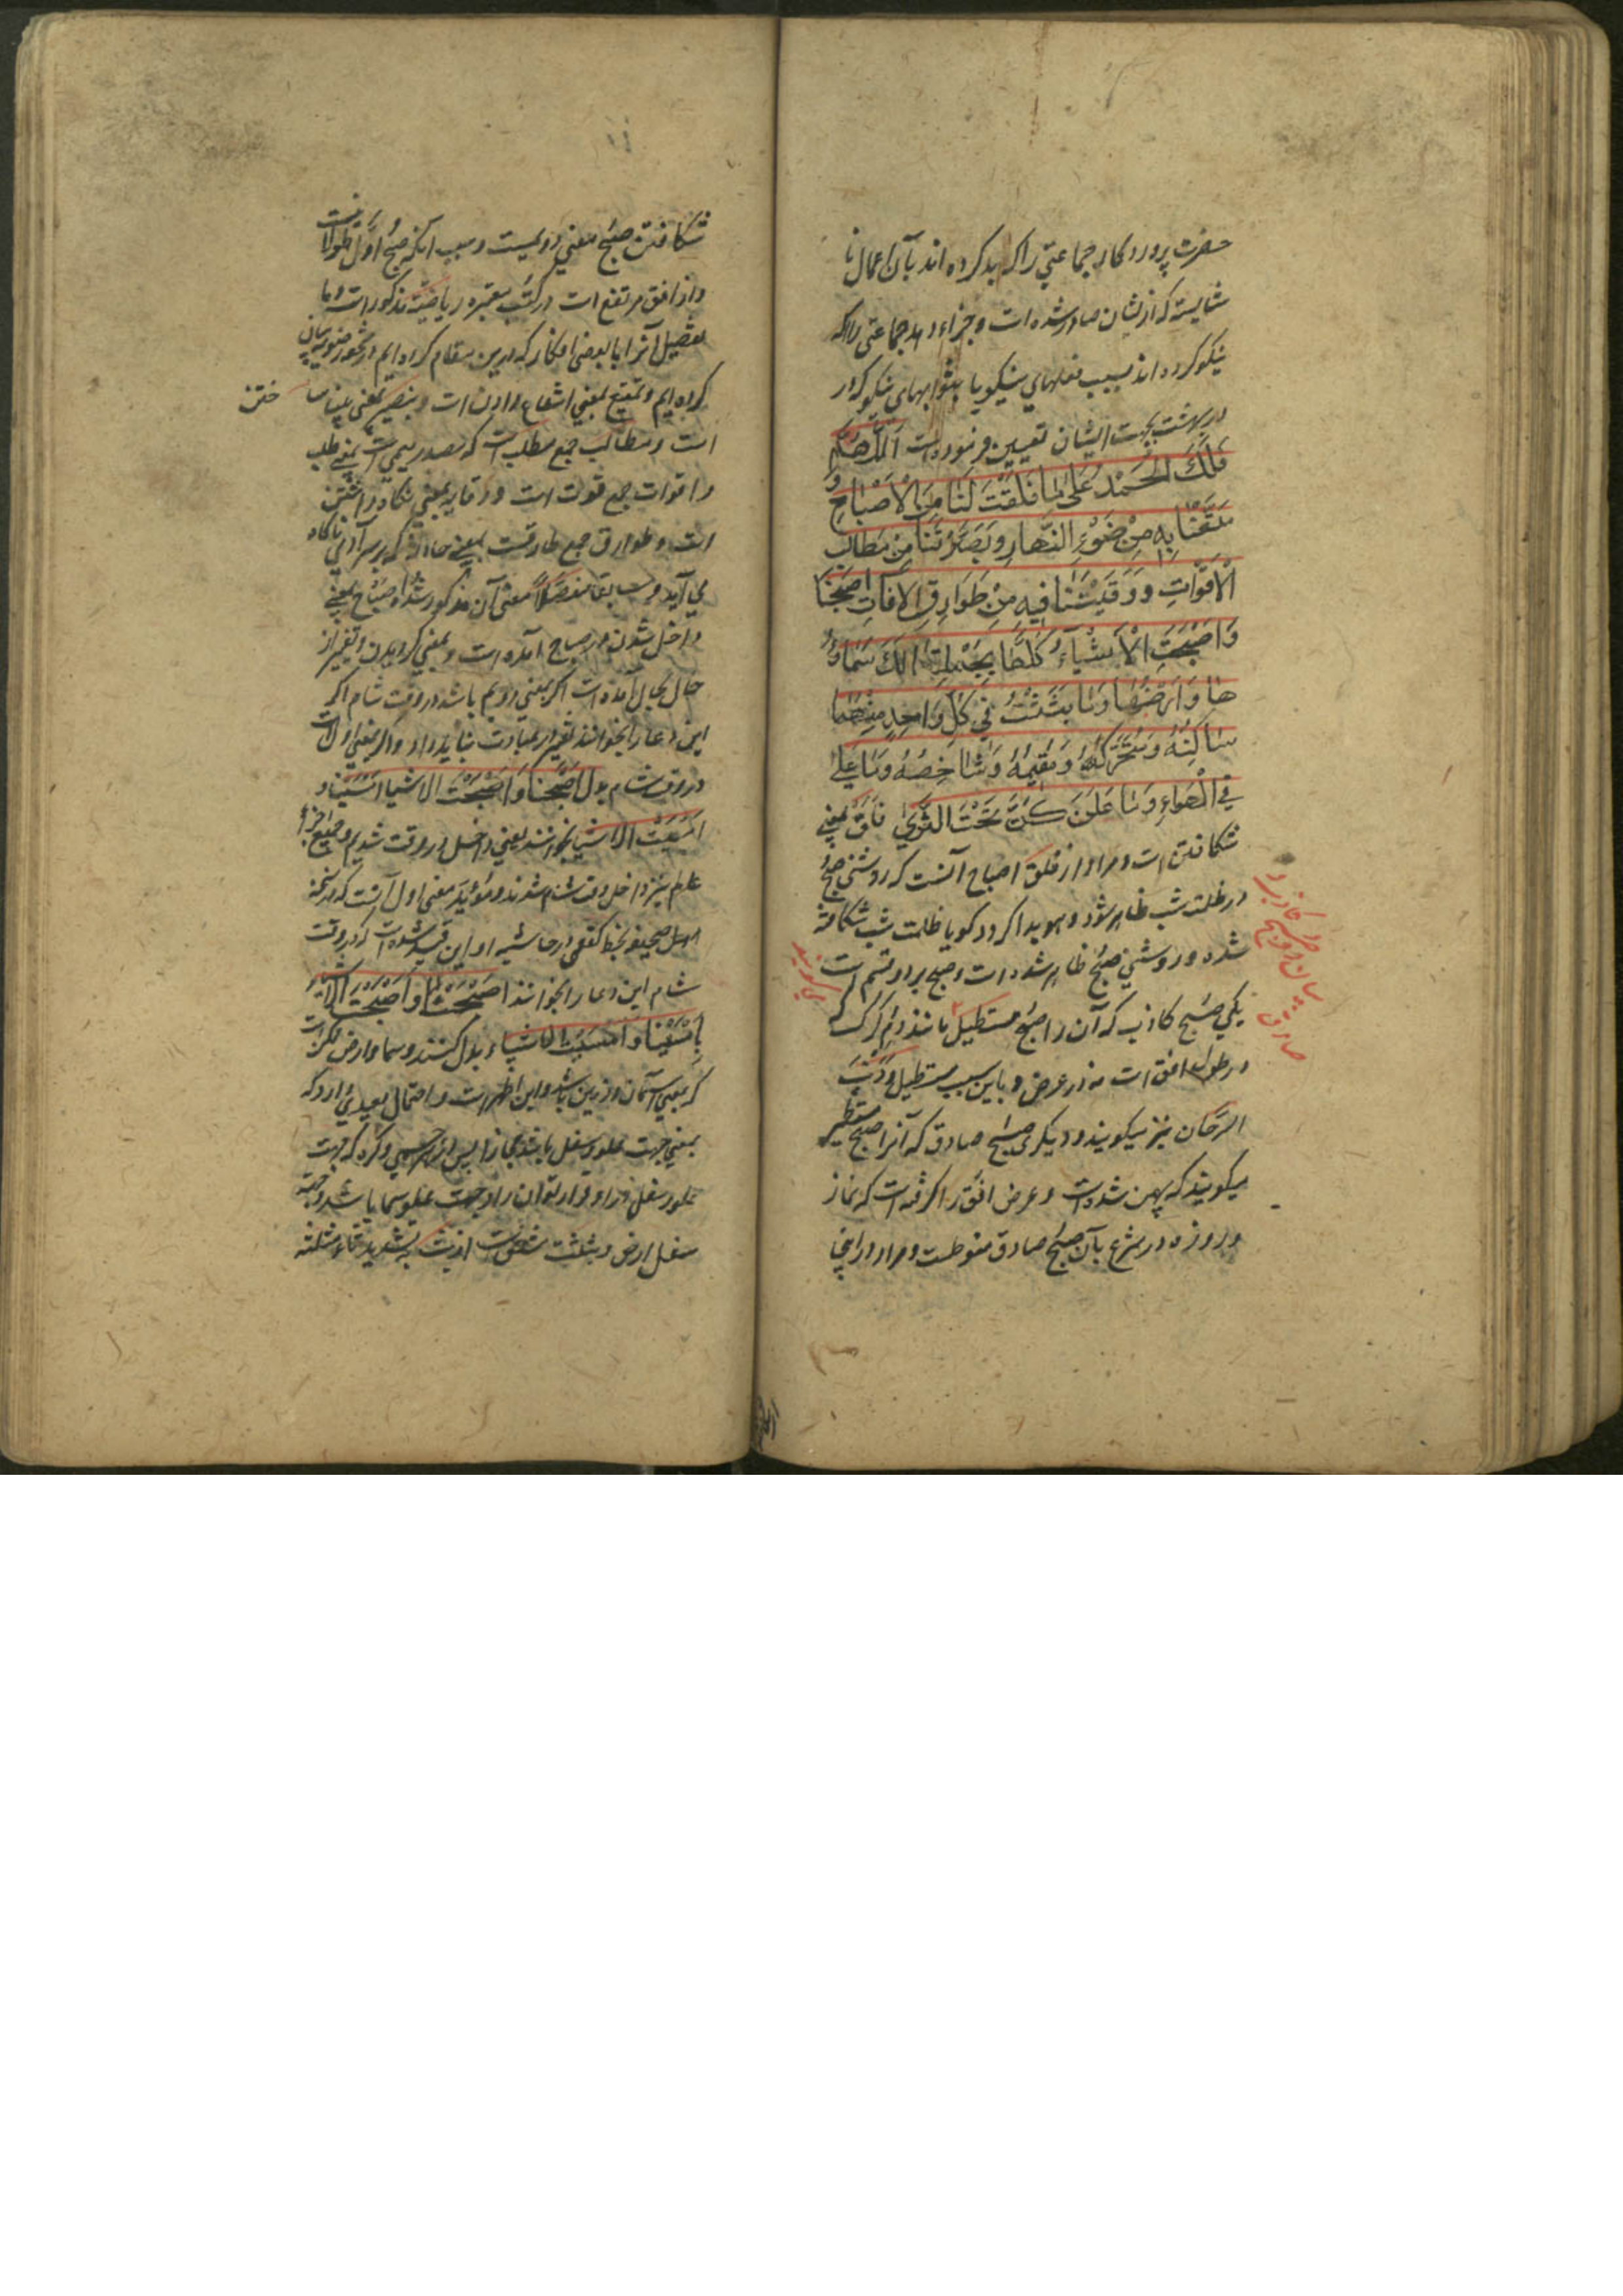 حضرت پروردگار جماعتی را که بد کرده اند بآن اعمال نا
شایسته که ازیشان صادر شده است و جزاء دهد جماعتی را که
نیکو کرده اند بسبب فعلهای نیکو یا بثوابهای نیکو که در
در بهشت بجهت ایشان تعیین فرموده است اَللّٰهُمَّ
فَلَكَ الْحَمْدُ عَلٰى مَا فَلَقْتَ لَنَا مِنَ الْاَصْبَاحِ وَ
مَتَّعْتَنَا بِهِ مِنْ ضَوْءِ النَّهَارِ وَبَصَّرْتَنَا مِنْ مَطَالِبِ
الْاَقْوَاتِ وَ وَقَيْتَنَا فِيهِ مِنْ طَوَارِقِ الْاٰفَاتِ اَصْبَحْنَا
وَاَصْبَحَتِ الْاَشْيَاءُ كُلُّهَا بِجُمْلَتِهَا لَكَ سَمَاؤُ
هَا وَاَرْضُهَا وَمَا بَثَثْتَ فِي كُلِّ وَاحِدٍ مِنْهُمَا
سَاكِنُهُ وَمُتَحَرِّكُهُ وَمُقِيمُهُ وَشَاخِصُهُ وَمَا عَلَا
فِي الْهَوَاءِ وَمَا كَنَّ تَحْتَ الثَّرٰى فلق بمعنی
شکافتن است و مراد از فلق اصباح آنست که روشنی صبح
در ظلمت شب ظاهر شود و هویدا گردد گویا ظلمت شب شکافته
شده و روشنی صبح ظاهر شده است و صبح بر دو قسم است
یکی صبح کاذب که آن را صبح مستطیل مانند دم گرگ که
در طول افق است نه در عرض و باین سبب مستطیل و ذنب
السرحان نیز میگویند و دیگری صبح صادق که آنرا صبح مستطیر
میگویند که پهن شده است و عرض افق را گرفته است که نماز
و روزه در شرع بآن صبح صادق منوطست و مراد در اینجا
بیان دو صبح کاذب و
صادق
می گویند
شکافتن صبح بمعنی دویمست و سبب اینکه صبح اول طولانیست
و از افق مرتفع است در کتب معتبره ریاضیه مذکور است و ما
تفصیل آنرا با بعضی افکار که درین مقام کرده ایم در بیان
کرده ایم و تمتیع بمعنی انتفاع دادن است و تبصیر بمعنی بینا سا
ختن
است و مطالب جمع مطلب است که مصدر میمی است بمعنی طلب
و اقوات جمع قوت است و وقایه بمعنی نگاه داشتن
است و طوارق جمع طارقست بمعنی حادثه که بر سر آدمی ناگاه
می آید و سابقا مفصلاً معنی آن مذکور شد و اصباح بمعنی
داخل شدن در صباح آمده است و بمعنی گردیدن و تغییر از
حال بحال آمده است اگر بمعنی دویم باشد در وقت شام اگر
این دعا را بخوانند تغییر در عبارت نباید داد و اگر بمعنی اول است
در وقت شام بدل اَصْبَحْنَا وَاَصْبَحَتْ الاشیا امسینا و
امست الاشیا بخوانند یعنی داخل در وقت شدیم و جمیع اجزاء
عالم نیز داخل وقت شام شدند و مؤید معنی اول آنست که در نسخه
اصل صحیفه بخط کفعمی در حاشیه او این قید شده است که در وقت
شام این دعا را بخوانند اَصْبَحْنَا وَاَصْبَحَتِ الاشیاء
بامسینا و امست الاشیاء بدل کنند و سما و ارض ممکن است
که بمعنی آسمان و زمین باشد و این اظهر است و احتمال بعیدی دارد که
بمعنی جهت علو و سفل باشد مجازا پس از هر جسمی و کره که جهت
علو و سفل دارد توان را و جهت علو سما باشد و جهة
سفل ارض و بثثت مشتق است از بث به تشدید ثاء مثلثه